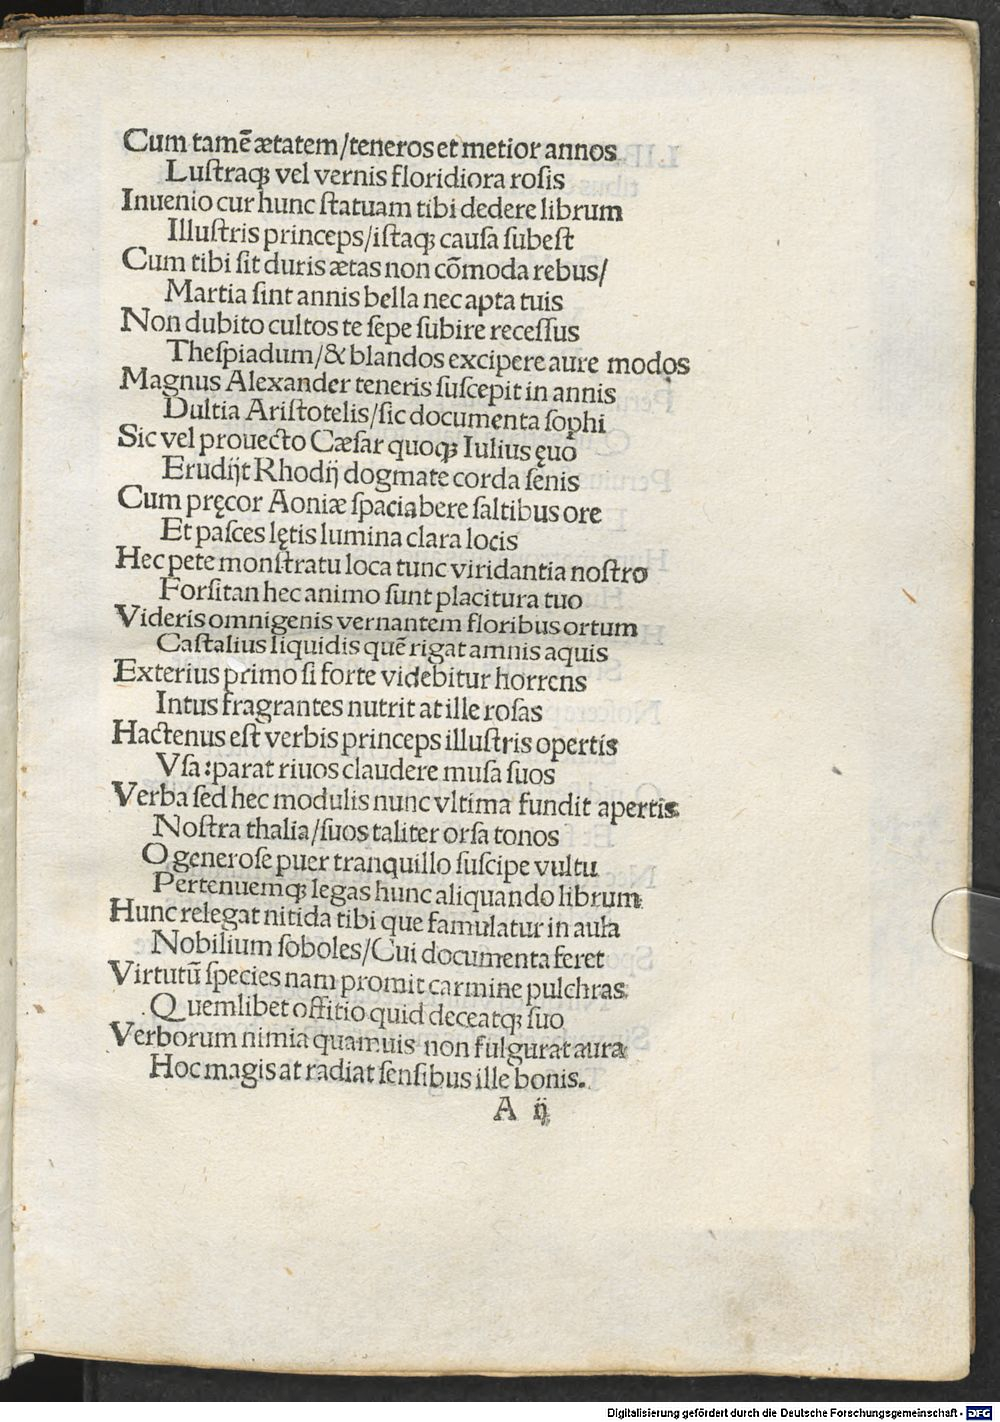 Cum tamē ætatem/teneros et metior annos
Luſtraqꝫ vel vernis floridiora roſis
Inuenio cur hunc ſtatuam tibi dedere librum
Illuſtris princeps/iſtaqꝫ cauſa ſubeſt
Cum tibi ſit duris ætas non cōmoda rebus/
Martia ſint annis bella nec apta tuis
Non dubito cultos te ſepe ſubire receſſus
Theſpiadum/& blandos excipere aure modos
Magnus Alexander teneris ſuſcepit in annis
Dultia Ariſtotelis/ſic documenta ſophi
Sic vel prouecto Cæſar quoqꝫ Iulius ęuo
Erudijt Rhodij dogmate corda ſenis
Cum pręcor Aoniæ ſpaciabere ſaltibus ore
Et paſces lętis lumina clara locis
Hec pete monſtratu loca tunc viridantia noſtro
Forſitan hec animo ſunt placitura tuo
Videris omnigenis vernantem floribus ortum
Caſtalius liquidis quē rigat amnis aquis
Exterius primo ſi forte videbitur horrens
Intus fragrantes nutrit at ille roſas
Hactenus eſt verbis princeps illuſtris opertis
Vſa:parat riuos claudere muſa ſuos
Verba ſed hec modulis nunc vltima fundit apertis
Noſtra thalia/ſuos taliter orſa tonos
O generoſe puer tranquillo ſuſcipe vultu
Pertenuemqꝫ legas hunc aliquando librum
Hunc relegat nitida tibi que famulatur in aula
Nobilium ſoboles/Cui documenta feret
Virtutū ſpecies nam promit carmine pulchras
Quemlibet offitio quid deceatqꝫ ſuo
Verborum nimia quamuis non fulgurat aura
Hoc magis at radiat ſenſibus ille bonis.
A ij
Digitalisierung gefördert durch die Deutsche Forschungsgemeinschaft - DFG